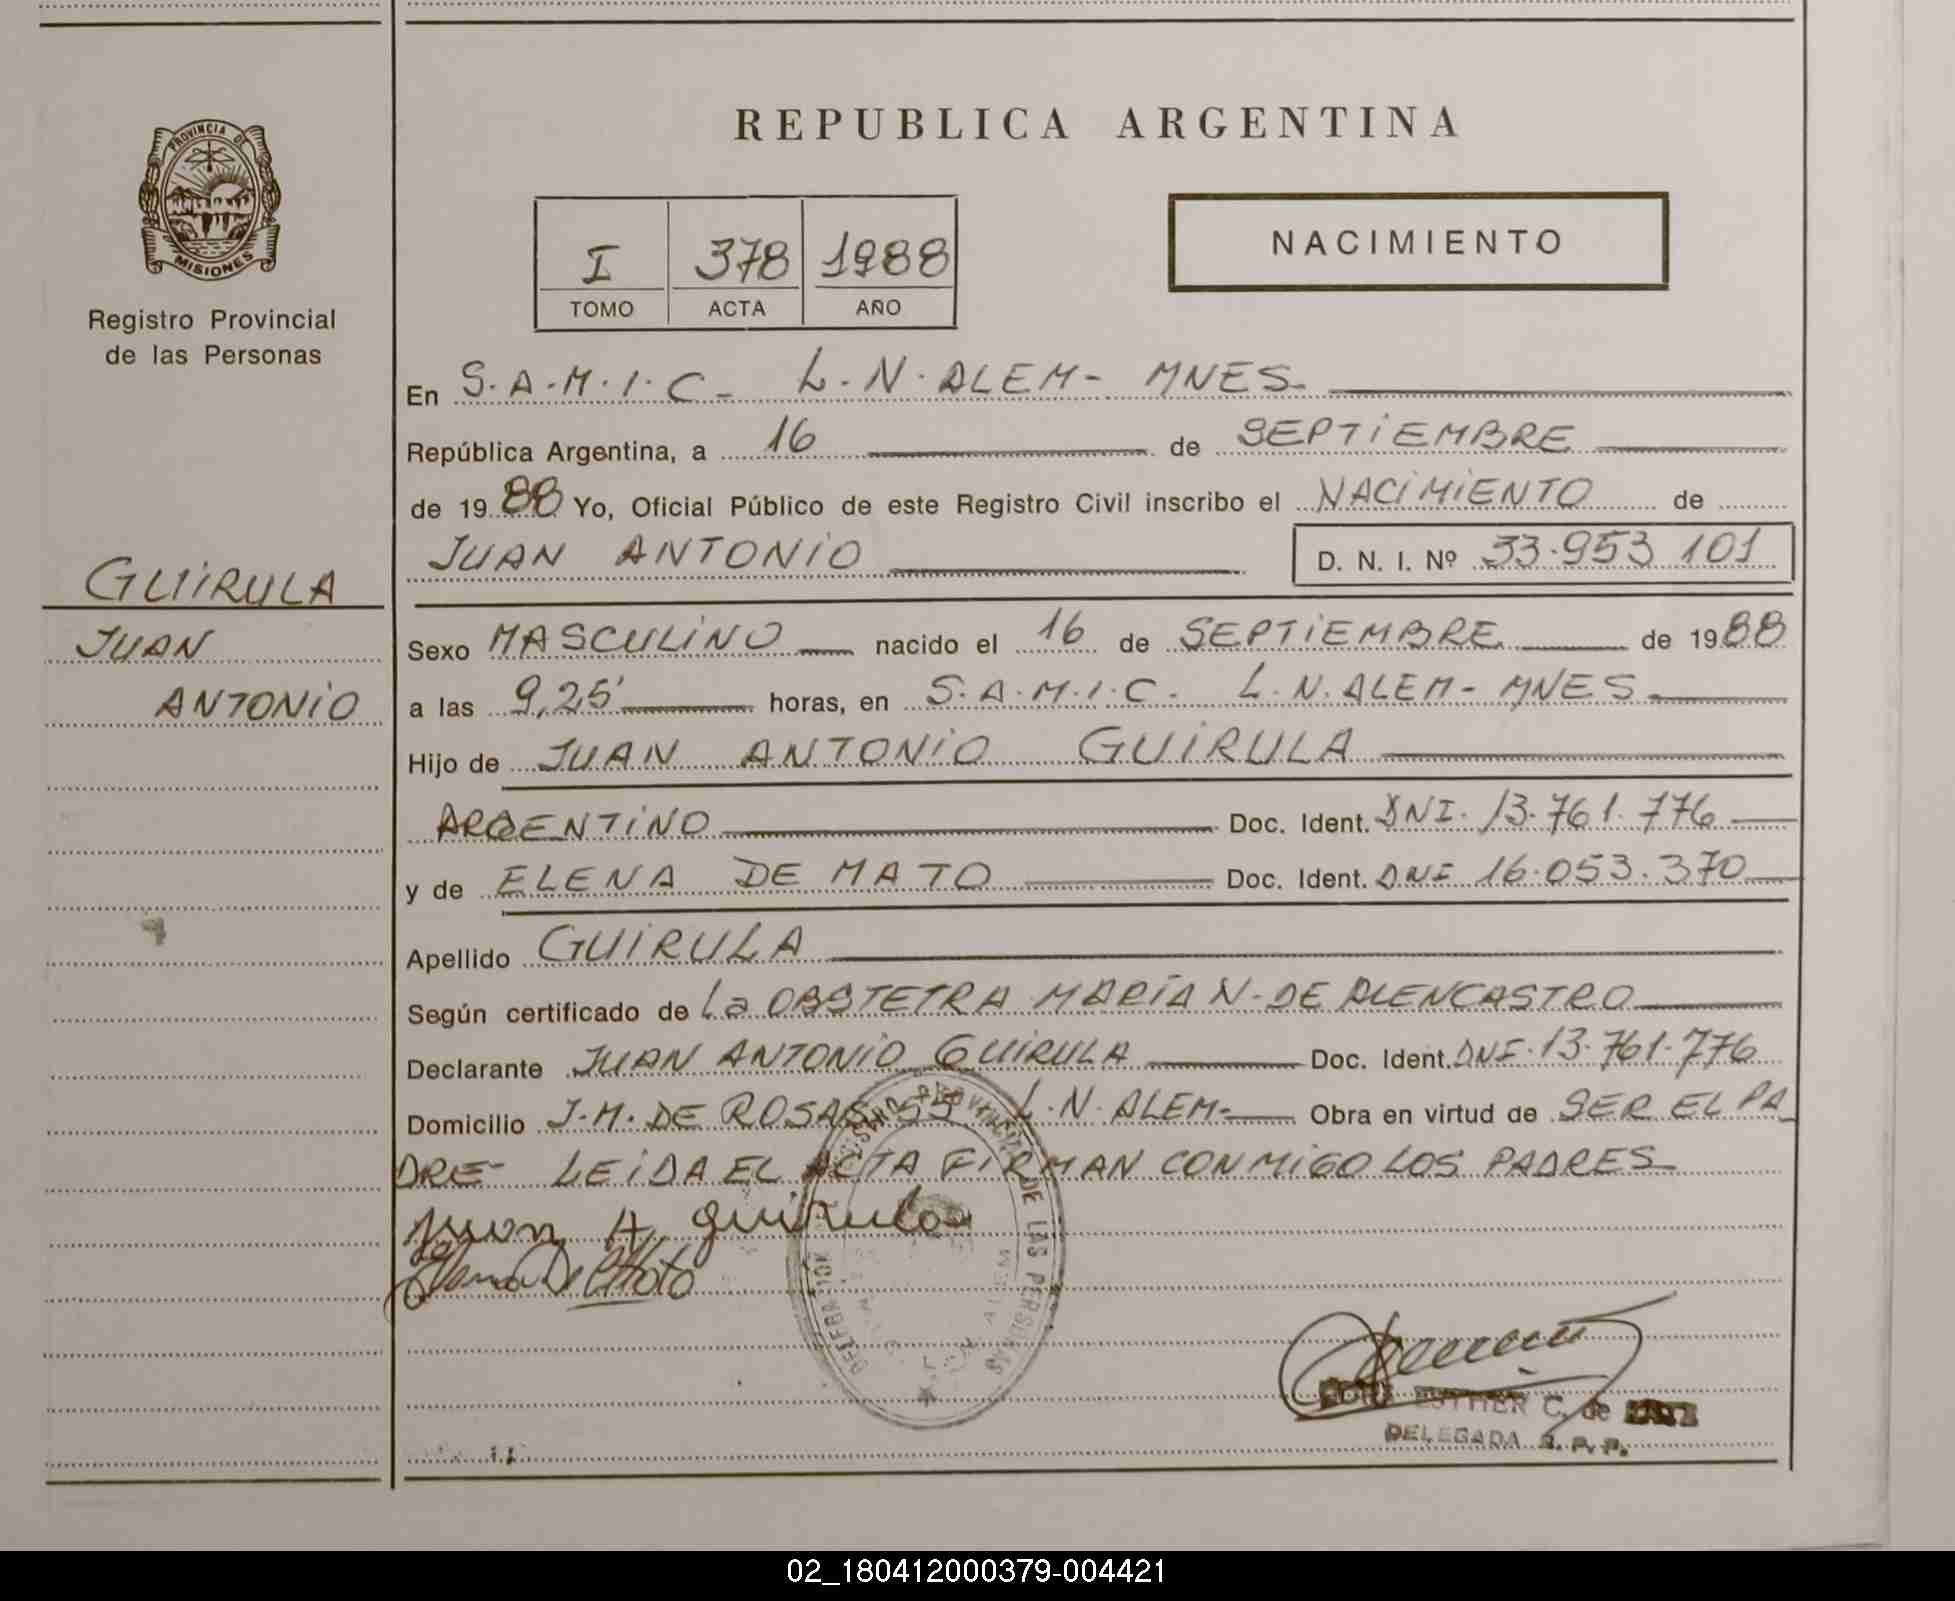 REPUBLICA ARGENTINA
PROVINCIA DE
MISIONES
Registro Provincial
de las Personas
I 378 1988
TOMO ACTA AÑO
NACIMIENTO
En S.A.M.I.C- L.N.ALEM- MNES.
República Argentina, a 16 de SEPTIEMBRE
de 1988 Yo, Oficial Público de este Registro Civil inscribo el NACIMIENTO de
JUAN ANTONIO D. N. I. Nº 33.953 101
GUIRULA
JUAN
ANTONIO
Sexo MASCULINO nacido el 16 de SEPTIEMBRE de 1988
a las 9,25' horas, en S.A.M.I.C. L.N.ALEM- MNES
Hijo de JUAN ANTONIO GUIRULA
ARGENTINO Doc. Ident. DNI. 13.761.776
y de ELENA DE MATO Doc. Ident. DNI 16.053.370
Apellido GUIRULA
Según certificado de La OBSTETRA MARIA N-DE ALENCASTRO
Declarante JUAN ANTONIO GUIRULA Doc. Ident. DNI.13.761.776
Domicilio J.M.DE ROSAS L.N.ALEM- Obra en virtud de SER EL PA
DRE- LEIDA EL ACTA FIRMAN CONMIGO LOS PADRES
Juan A guirula
Elena De Mato
DE LAS PERSONAS
ESTHER C. de
DELEGADA R. P. P.
02_180412000379-004421